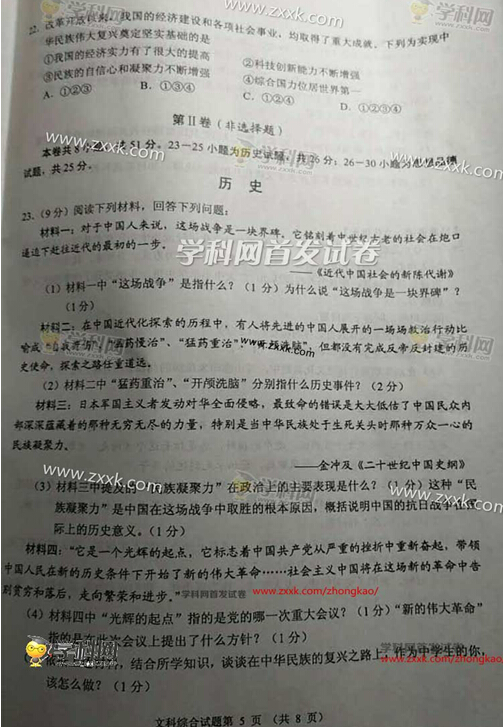 学科网 www.zxxk.com
22. 改革开放以来，我国的经济建设和各项社会事业，均取得了重大成就。下列为实现中
华民族伟大复兴奠定坚实基础的是
①我国的经济实力有了很大的提高 ②科技创新能力不断增强
③民族的自信心和凝聚力不断增强 ④综合国力位居世界第一
A．①②③ B．①③④ C．①②④ D．①②③④
第Ⅱ卷（非选择题）
本卷共8小题，共51分。23－25小题为历史试题，共26分；26－30小题为
试题，共25分。
www.zxxk.com
历 史
23.（9分）阅读下列材料，回答下列问题：
材料一：对于中国人来说，这场战争是一块界碑。它铭刻着中世纪古老的社会在炮口
逼迫下赶往近代的最初的一步。
学科网首发试卷
——《近代中国社会的新陈代谢》
（1）材料一中“这场战争”是指什么？（1分）为什么说“这场战争是一块界碑”？
（1分）
材料二：在中国近代化探索的历程中，有人将先进的中国人展开的一场场救治行动比
喻成“自我开方”、“温药慢治”、“猛药重治”、“开颅洗脑”，但都没有完成反帝反封建的历
史使命，探索之路任重道远。
www.zxxk.com
（2）材料二中“猛药重治”、“开颅洗脑”分别指什么历史事件？（2分）
材料三：日本军国主义者发动对华全面侵略，最致命的错误是大大低估了中国民众内
部深深蕴藏着的那种无穷无尽的力量，特别是当中华民族处于生死关头时那种万众一心的
民族凝聚力。
——金冲及《二十世纪中国史纲》
（3）材料三中提及的“民族凝聚力”在政治上的主要表现是什么？（1分）这种“民
族凝聚力”是中国在这场战争中取胜的根本原因，概括说明中国的抗日战争在国
际上的历史意义。（1分）
材料四：“它是一个光辉的起点，它标志着中国共产党从严重的挫折中重新奋起，带领
中国人民在新的历史条件下开始了新的伟大革命……社会主义中国将在这场新的革命中告
别贫穷和落后，走向繁荣和进步。”
学科网首发试卷 www.zxxk.com/zhongkao/
（4）材料四中“光辉的起点”指的是党的哪一次重大会议？（1分）“新的伟大革命”
指的是在此次会议上提出了什么方针？（1分）
结合所学知识，谈谈在中华民族的复兴之路上，作为中学生的你，
该怎么做？（1分）
学科网首发试卷
www.zxxk.com/zhongkao/
学科网 www.zxxk.com
文科综合试题第 5 页（共 8 页）